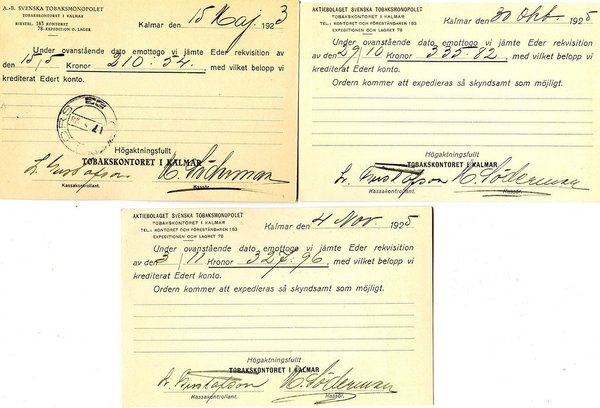 A.-B. SVENSKA TOBAKSMONOPOLET
TOBAKSKONTORET I KALMAR
RIKSTEL. 153 KONTORET
76-EXPEDITION O. LAGER
Kalmar den 15 Maj 1923
Under ovanstående dato emottogo vi jämte Eder rekvisition av
den 15/5 Kronor 210:54. med vilket belopp vi
krediterat Edert konto.
Högaktningsfullt
TOBAKSKONTORET I KALMAR
L. Gustafson M. Söderman
Kassakontrollant. Kassör.
AKTIEBOLAGET SVENSKA TOBAKSMONOPOLET
TOBAKSKONTORET I KALMAR
TEL.: KONTORET OCH FÖRESTÅNDAREN 153
EXPEDITIONEN OCH LAGRET 76
Kalmar den 30 Okt. 1925
Under ovanstående dato emottogo vi jämte Eder rekvisition
av den 29/10 Kronor 335-82, med vilket belopp vi
krediterat Edert konto.
Ordern kommer att expedieras så skyndsamt som möjligt.
Högaktningsfullt
TOBAKSKONTORET I KALMAR
L. Gustafson M. Söderman
Kassakontrollant. Kassör.
AKTIEBOLAGET SVENSKA TOBAKSMONOPOLET
TOBAKSKONTORET I KALMAR
TEL.: KONTORET OCH FÖRESTÅNDAREN 153
EXPEDITIONEN OCH LAGRET 76
Kalmar den 4 Nov. 1925
Under ovanstående dato emottogo vi jämte Eder rekvisition
av den 3/11 Kronor 327-96, med vilket belopp vi
krediterat Edert konto.
Ordern kommer att expedieras så skyndsamt som möjligt.
Högaktningsfullt
TOBAKSKONTORET I KALMAR
L. Gustafson M. Söderman
Kassakontrollant. Kassör.